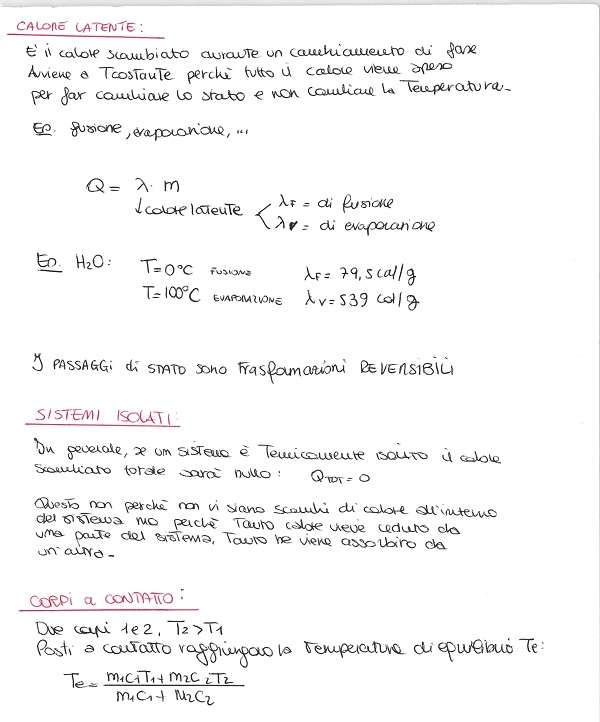 CALORE LATENTE:
E' il calore scambiato durante un cambiamento di fase
Avviene a Tcostante perchè tutto il calore viene speso
per far cambiare lo stato e non cambiare la Temperatura.
Es. fusione, evaporazione, ...
Q = λ · m
↓ calore latente < λF = di fusione
λV = di evaporazione
Es. H2O: T=0°C FUSIONE λF = 79,5 cal/g
T=100°C EVAPORAZIONE λV = 539 cal/g
I PASSAGGI di STATO sono Trasformazioni REVERSIBILI
SISTEMI ISOLATI:
In generale, se un sistema è Termicamente isolato il calore
scambiato totale sarà nullo: QTOT = 0
Questo non perchè non vi siano scambi di calore all'interno
del sistema ma perchè Tanto calore viene ceduto da
una parte del sistema, Tanto ne viene assorbito da
un'altra.
CORPI a CONTATTO:
Due corpi 1 e 2, T2 > T1
Posti a contatto raggiungono la Temperatura di equilibrio Te:
Te = m1C1T1 + m2C2T2
m1C1 + M2C2